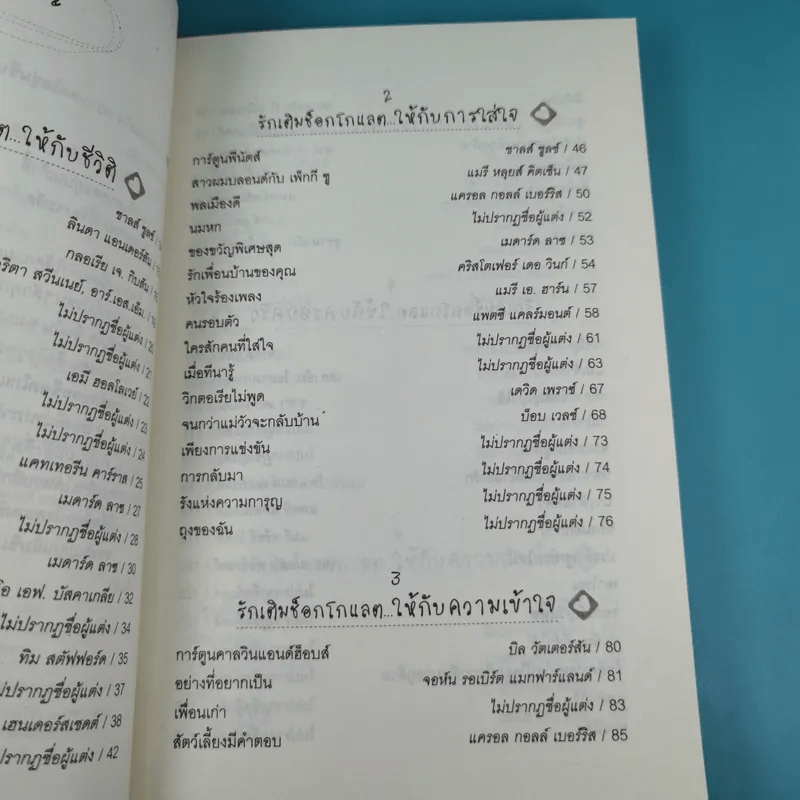 ให้กับชีวิต
ชาลส์ ชูลซ์ /
ลินดา แอนเดอร์สัน /
กลอเรีย เจ. กิบสัน /
สวีนเนย์, อาร์.เอส.เอ็ม. /
ไม่ปรากฏชื่อผู้แต่ง / 20
ไม่ปรากฏชื่อผู้แต่ง / 21
เอมี ฮอลโลเวย์ / 22
ไม่ปรากฏชื่อผู้แต่ง / 23
ไม่ปรากฏชื่อผู้แต่ง / 24
แคทเทอรีน คาร์ราส / 25
เมดาร์ด ลาซ / 27
ไม่ปรากฏชื่อผู้แต่ง / 28
เมดาร์ด ลาซ / 30
เอฟ. บัสคาเกลีย / 32
ไม่ปรากฏชื่อผู้แต่ง / 34
ทิม สตัฟฟอร์ด / 35
ไม่ปรากฏชื่อผู้แต่ง / 37
เฮนเดอร์สเชดต์ / 38
ปรากฏชื่อผู้แต่ง / 42
2
รักเติมช็อกโกแลต...ให้กับการใส่ใจ
การ์ตูนพีนัตส์ ชาลส์ ชูลซ์ / 46
สาวผมบลอนด์กับ เพ็กกี ซู แมรี หลุยส์ คิตเซ็น / 47
พลเมืองดี แครอล กอลล์ เบอร์ริส / 50
นมหก ไม่ปรากฏชื่อผู้แต่ง / 52
ของขวัญพิเศษสุด เมดาร์ด ลาซ / 53
รักเพื่อนบ้านของคุณ คริสโตเฟอร์ เดอ วินก์ / 54
หัวใจร้องเพลง แมรี เอ. ฮาร์น / 57
คนรอบตัว แพตซี แคลร์มอนต์ / 58
ใครสักคนที่ใส่ใจ ไม่ปรากฏชื่อผู้แต่ง / 61
เมื่อทีนารู้ ไม่ปรากฏชื่อผู้แต่ง / 63
วิกตอเรียไม่พูด เดวิด เพราซ์ / 67
จนกว่าแม่วัวจะกลับบ้าน บ็อบ เวลซ์ / 68
เพียงการแข่งขัน ไม่ปรากฏชื่อผู้แต่ง / 73
การกลับมา ไม่ปรากฏชื่อผู้แต่ง / 74
รังแห่งความการุญ ไม่ปรากฏชื่อผู้แต่ง / 75
ถุงของฉัน ไม่ปรากฏชื่อผู้แต่ง / 76
3
รักเติมช็อกโกแลต...ให้กับความเข้าใจ
การ์ตูนคาลวินแอนด์ฮ็อบส์ บิล วัตเตอร์สัน / 80
อย่างที่อยากเป็น จอห์น รอเบิร์ต แมกฟาร์แลนด์ / 81
เพื่อนเก่า ไม่ปรากฏชื่อผู้แต่ง / 83
สัตว์เลี้ยงมีคำตอบ แครอล กอลล์ เบอร์ริส / 85